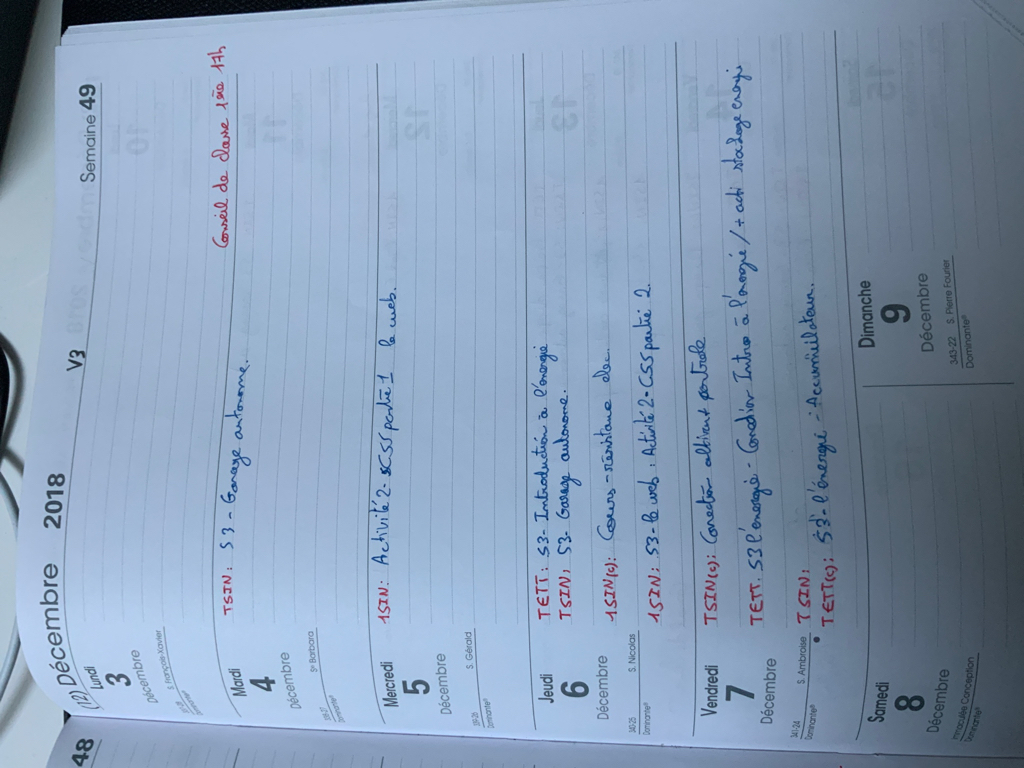 48
(12) Décembre 2018
V3
Semaine 49
Lundi
3
Décembre
S. François-Xavier
Conseil de classe 1ère 17h
Mardi
4
Décembre
Ste Barbara
TSIN: S3 - Garage autonome.
Mercredi
5
Décembre
S. Gérald
1SIN: Activité 2 - CSS partie 1 le web.
Jeudi
6
Décembre
340-25
S. Nicolas
TETT: S3 - Introduction à l'énergie
TSIN: S3 - Garage autonome.
1SIN(c): Cours - résistance elec.
1SIN: S3 - le web: Activité 2 - CSS partie 2.
Vendredi
7
Décembre
341-24
S. Ambroise
TSIN(c): Correction portrale
TETT: S3 l'énergie - Correction Intro à l'énergie / + acti stockage energie
TSIN:
TETT(c): S3 - l'énergie - Accumulateur.
Samedi
8
Décembre
Immaculée Conception
Dimanche
9
Décembre
343-22 S. Pierre Fourier